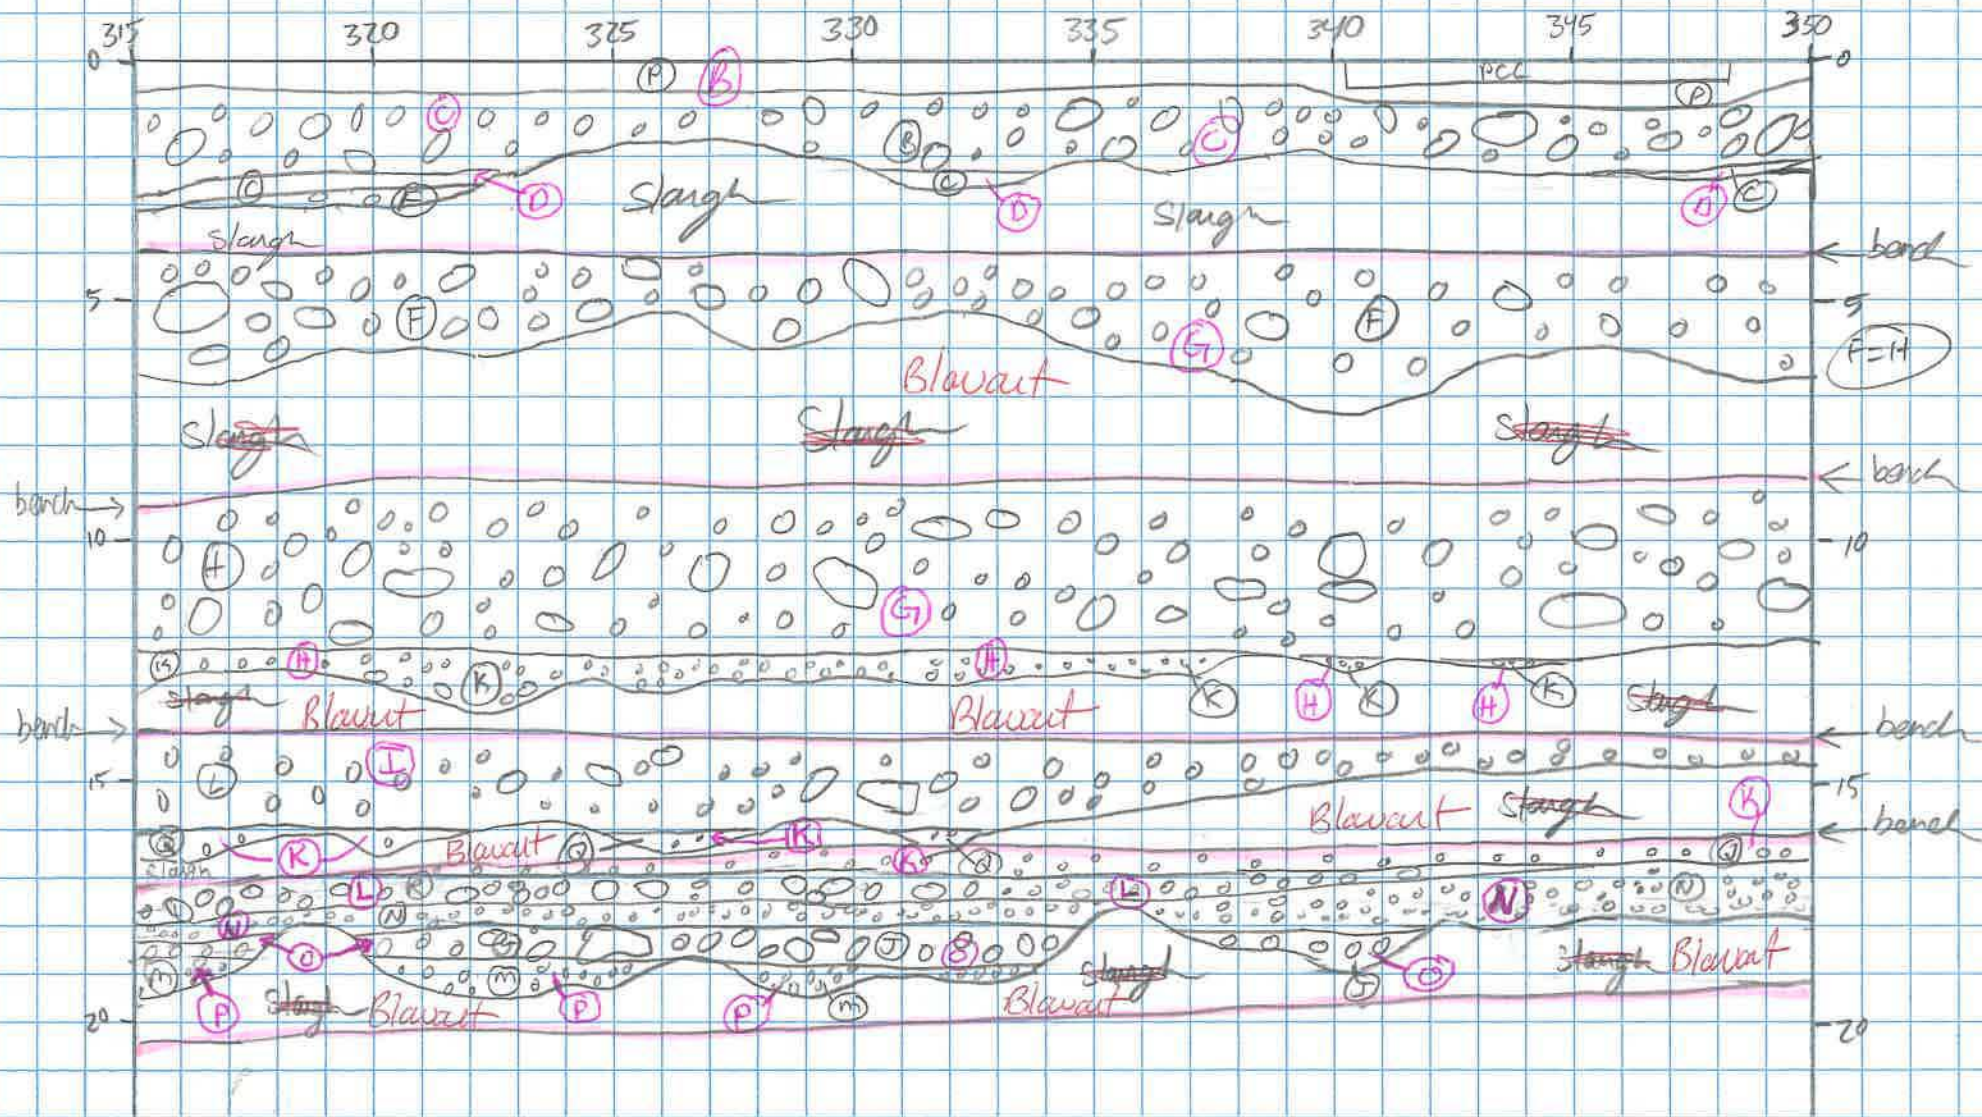 315 320 325 330 335 340 345 350
0 0
P B PCC P
C B C
C E D Slough C D Slough D C
Slough
bench
5 F F 5
G F=H
Blowout
Slough Slough Slough
bench
bench
10 H 10
G
H H
K K K K
Slough Blowout Blowout H H Slough
bench
bench
I
15 L 15
K
Blowout Slough
bench
Q K Blowout Q K K Q Q
Slough
L R L N N
N N
O J S
M M P Slough O Slough Blowout
P Slough Blowout P M Blowout J
20 20